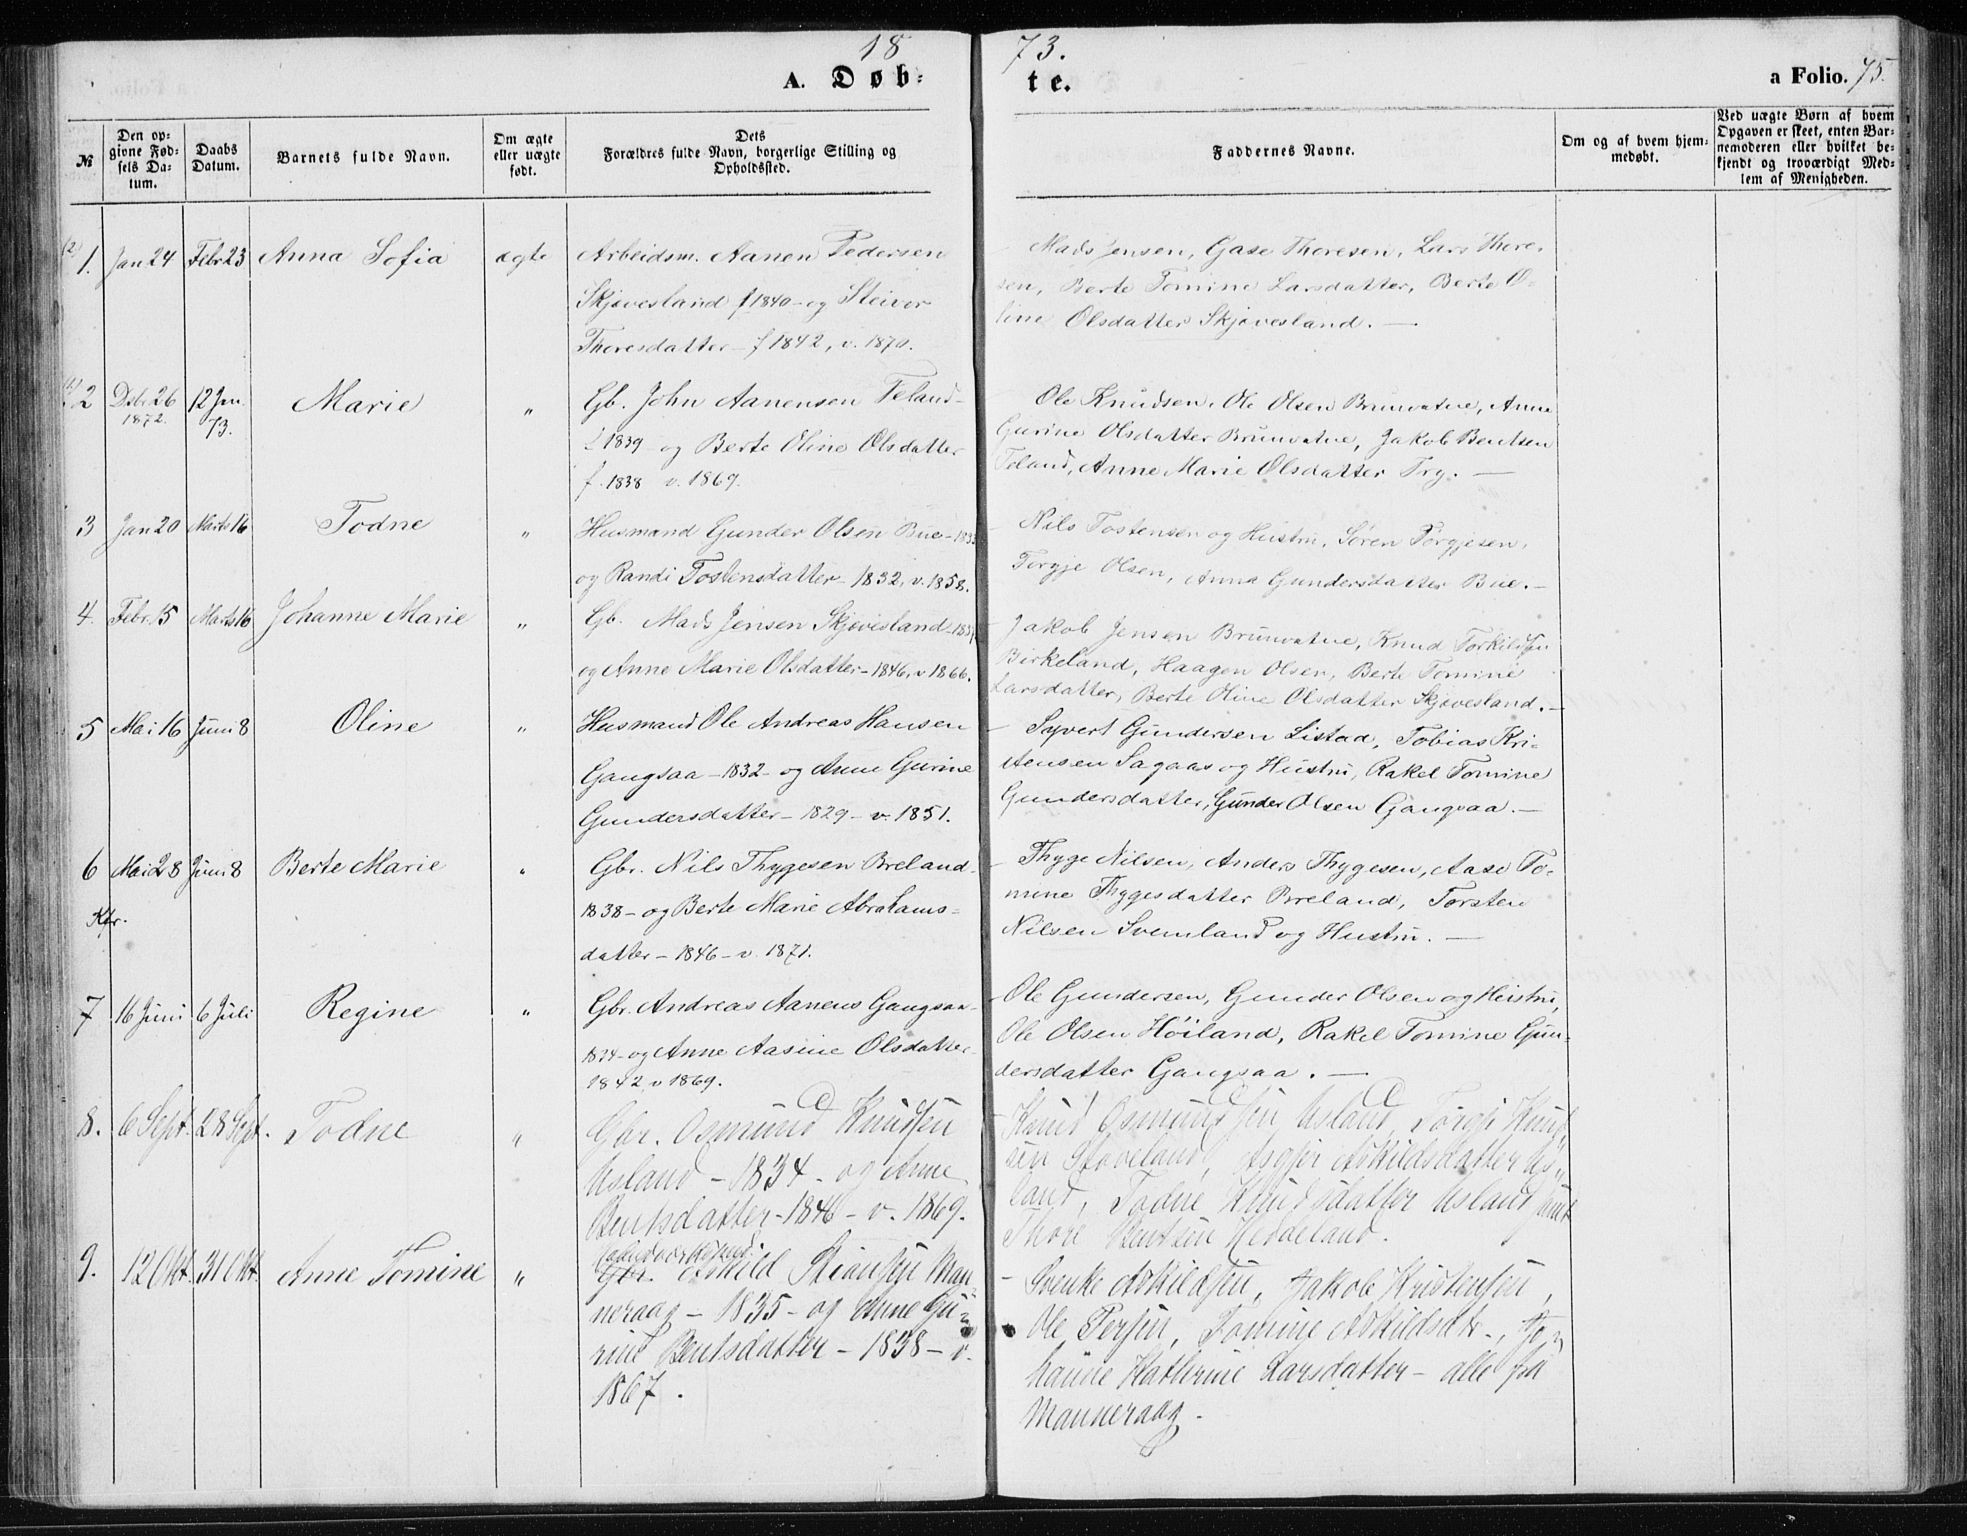 18 73.
A. Døb-
te.
a Folio. 75.
№
Den op-
givne Fød-
sels Da-
tum.
Daabs
Datum.
Barnets fulde Navn.
Om ægte
eller uægte
født.
Dets
Forældres fulde Navn, borgerlige Stilling og
Opholdssted.
Faddernes Navne.
Om og af hvem hjem-
medøbt.
Ved uægte Børn af hvem
Opgaven er skeet, enten Bar-
nemoderen eller hvilket be-
kjendt og troværdigt Med-
lem af Menigheden.
(2) 1. Jan 24 Febr 23 Anna Sofia ægte
Arbeidsm. Aanen Pedersen
Skjævesland f 1840 - og Steivor
Thoresdatter - f 1842, v. 1870.
Mads Jensen, Gase Thoresen, Lars Thore-
sen, Berte Tomine Larsdatter, Berte O-
line Olsdatter Skjævesland. —
(1) 2 Dsbr 26 1872. 12 Jan. 73. Marie "
Gb. John Aanensen Feland -
f 1839 og Berte Oline Olsdatter
f. 1838 v. 1869.
Ole Knudsen, Ole Olsen Brunvatne, Anne
Gurine Olsdatter Brunvatne, Jakob Bentsen
Feland, Anne Marie Olsdatter Try. —
3 Jan 20 Marts 16 Todne "
Husmand Gunder Olsen Bue - 1833
og Randi Tostensdatter - 1832, v. 1858.
Nils Tostensen og Hustru, Søren Torgjesen,
Torgje Olsen, Anna Gundersdatter Bue. —
4. Febr. 15 Marts 16 Johanne Marie "
Gb. Mads Jensen Skjævesland -
og Anne Marie Olsdatter - 1846, v 1866.
Jakob Jensen Brunvatne, Knud Torkildsen
Birkeland, Haagen Olsen, Berte Tomine
Larsdatter, Berte Oline Olsdatter Skjævesland. —
5 Mai 16 Juni 8 Oline "
Husmand Ole Andreas Hansen
Gangsaa - 1832 - og Anne Gurine
Gundersdatter - 1829 - v. 1851.
— Syvert Gundersen Listad, Tobias Kri-
stensen Sagaas og Hustru, Rakel Tomine
Gundersdatter, Gunder Olsen Gangsaa. —
6 Mai 28 Juni 8 Berte Marie "
Kfr.
Gbr. Nils Thygesen Breland -
1838 - og Berte Marie Abrahams-
datter - 1846 - v. 1871.
— Thyge Nilsen, Anders Thygesen, Aase To-
mine Thygesdatter Breland, Torsten
Nilsen Svenland og Hustru. —
7 16 Juni 6 Juli Regine "
Gbr. Andreas Aanens Gangsaa -
1824 - og Anne Aasine Olsdatter -
1842 v 1869.
— Ole Gundersen, Gunder Olsen og Hustru,
Ole Olsen Höiland, Rakel Tomine Gun-
dersdatter Gangsaa. —
8. 6 Sept. 28 Sept. Todne "
Gbr. Osmund Knudsen
Usland - 1834 - og Anne
Bentsdatter - 1846 - v. 1869.
— Knud Osmundsen Usland, Torgje Knud-
sen Støveland, Asgjer Askildsdatter Us-
land, Todne Knudsdatter Usland samt
Thore Bentsen Heddeland.
9. 12 Okt. 31 Okt. Anne Tomine "
Gbr. Askild Stiansen Man-
neraag - 1835 - og Anne Gu-
rine Bentsdatter - 1838 - v.
1867.
— Svenke Askildsen, Jakob Kristensen,
Ole Persen, Tomine Askildsdtr., Jo-
hanne Kathrine Larsdatter - alle fra
Manneraag.